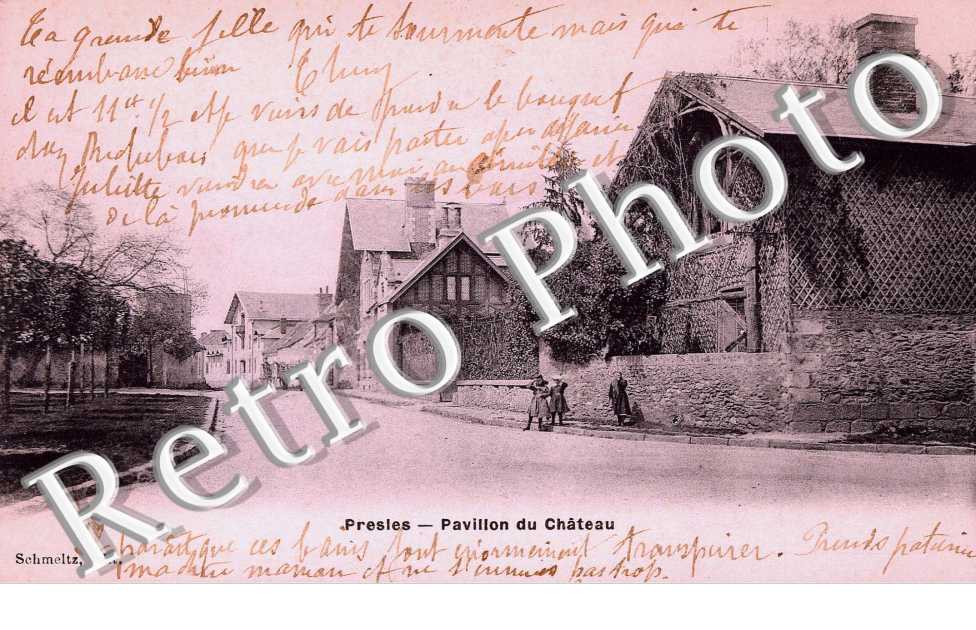 Ta grande fille qui te tourmente mais qui te
réembrasse bien
Il est 11h 1/2 et je viens de prendre le bouquet
chez que je vais porter après déjeuner
Juliette viendra avec moi au et
de là promenade dans les bois
Retro Photo
Presles — Pavillon du Château
Schmeltz,
paraît que ces bains font énormément transpirer. Prends patience
ma chère maman et ne t'ennuies pas trop.